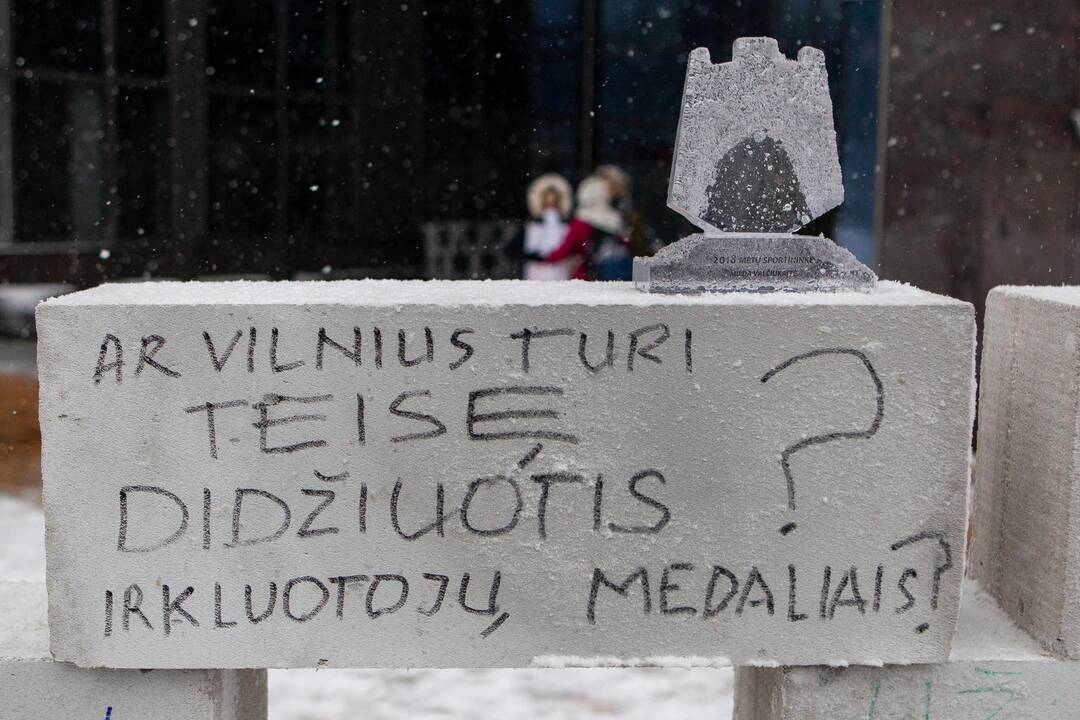 2018 METŲ SPORTININKĖ
MILDA VALČIUKAITĖ
AR VILNIUS TURI
TEISĘ ?
DIDŽIUOTIS
IRKLUOTOJŲ, MEDALIAIS?